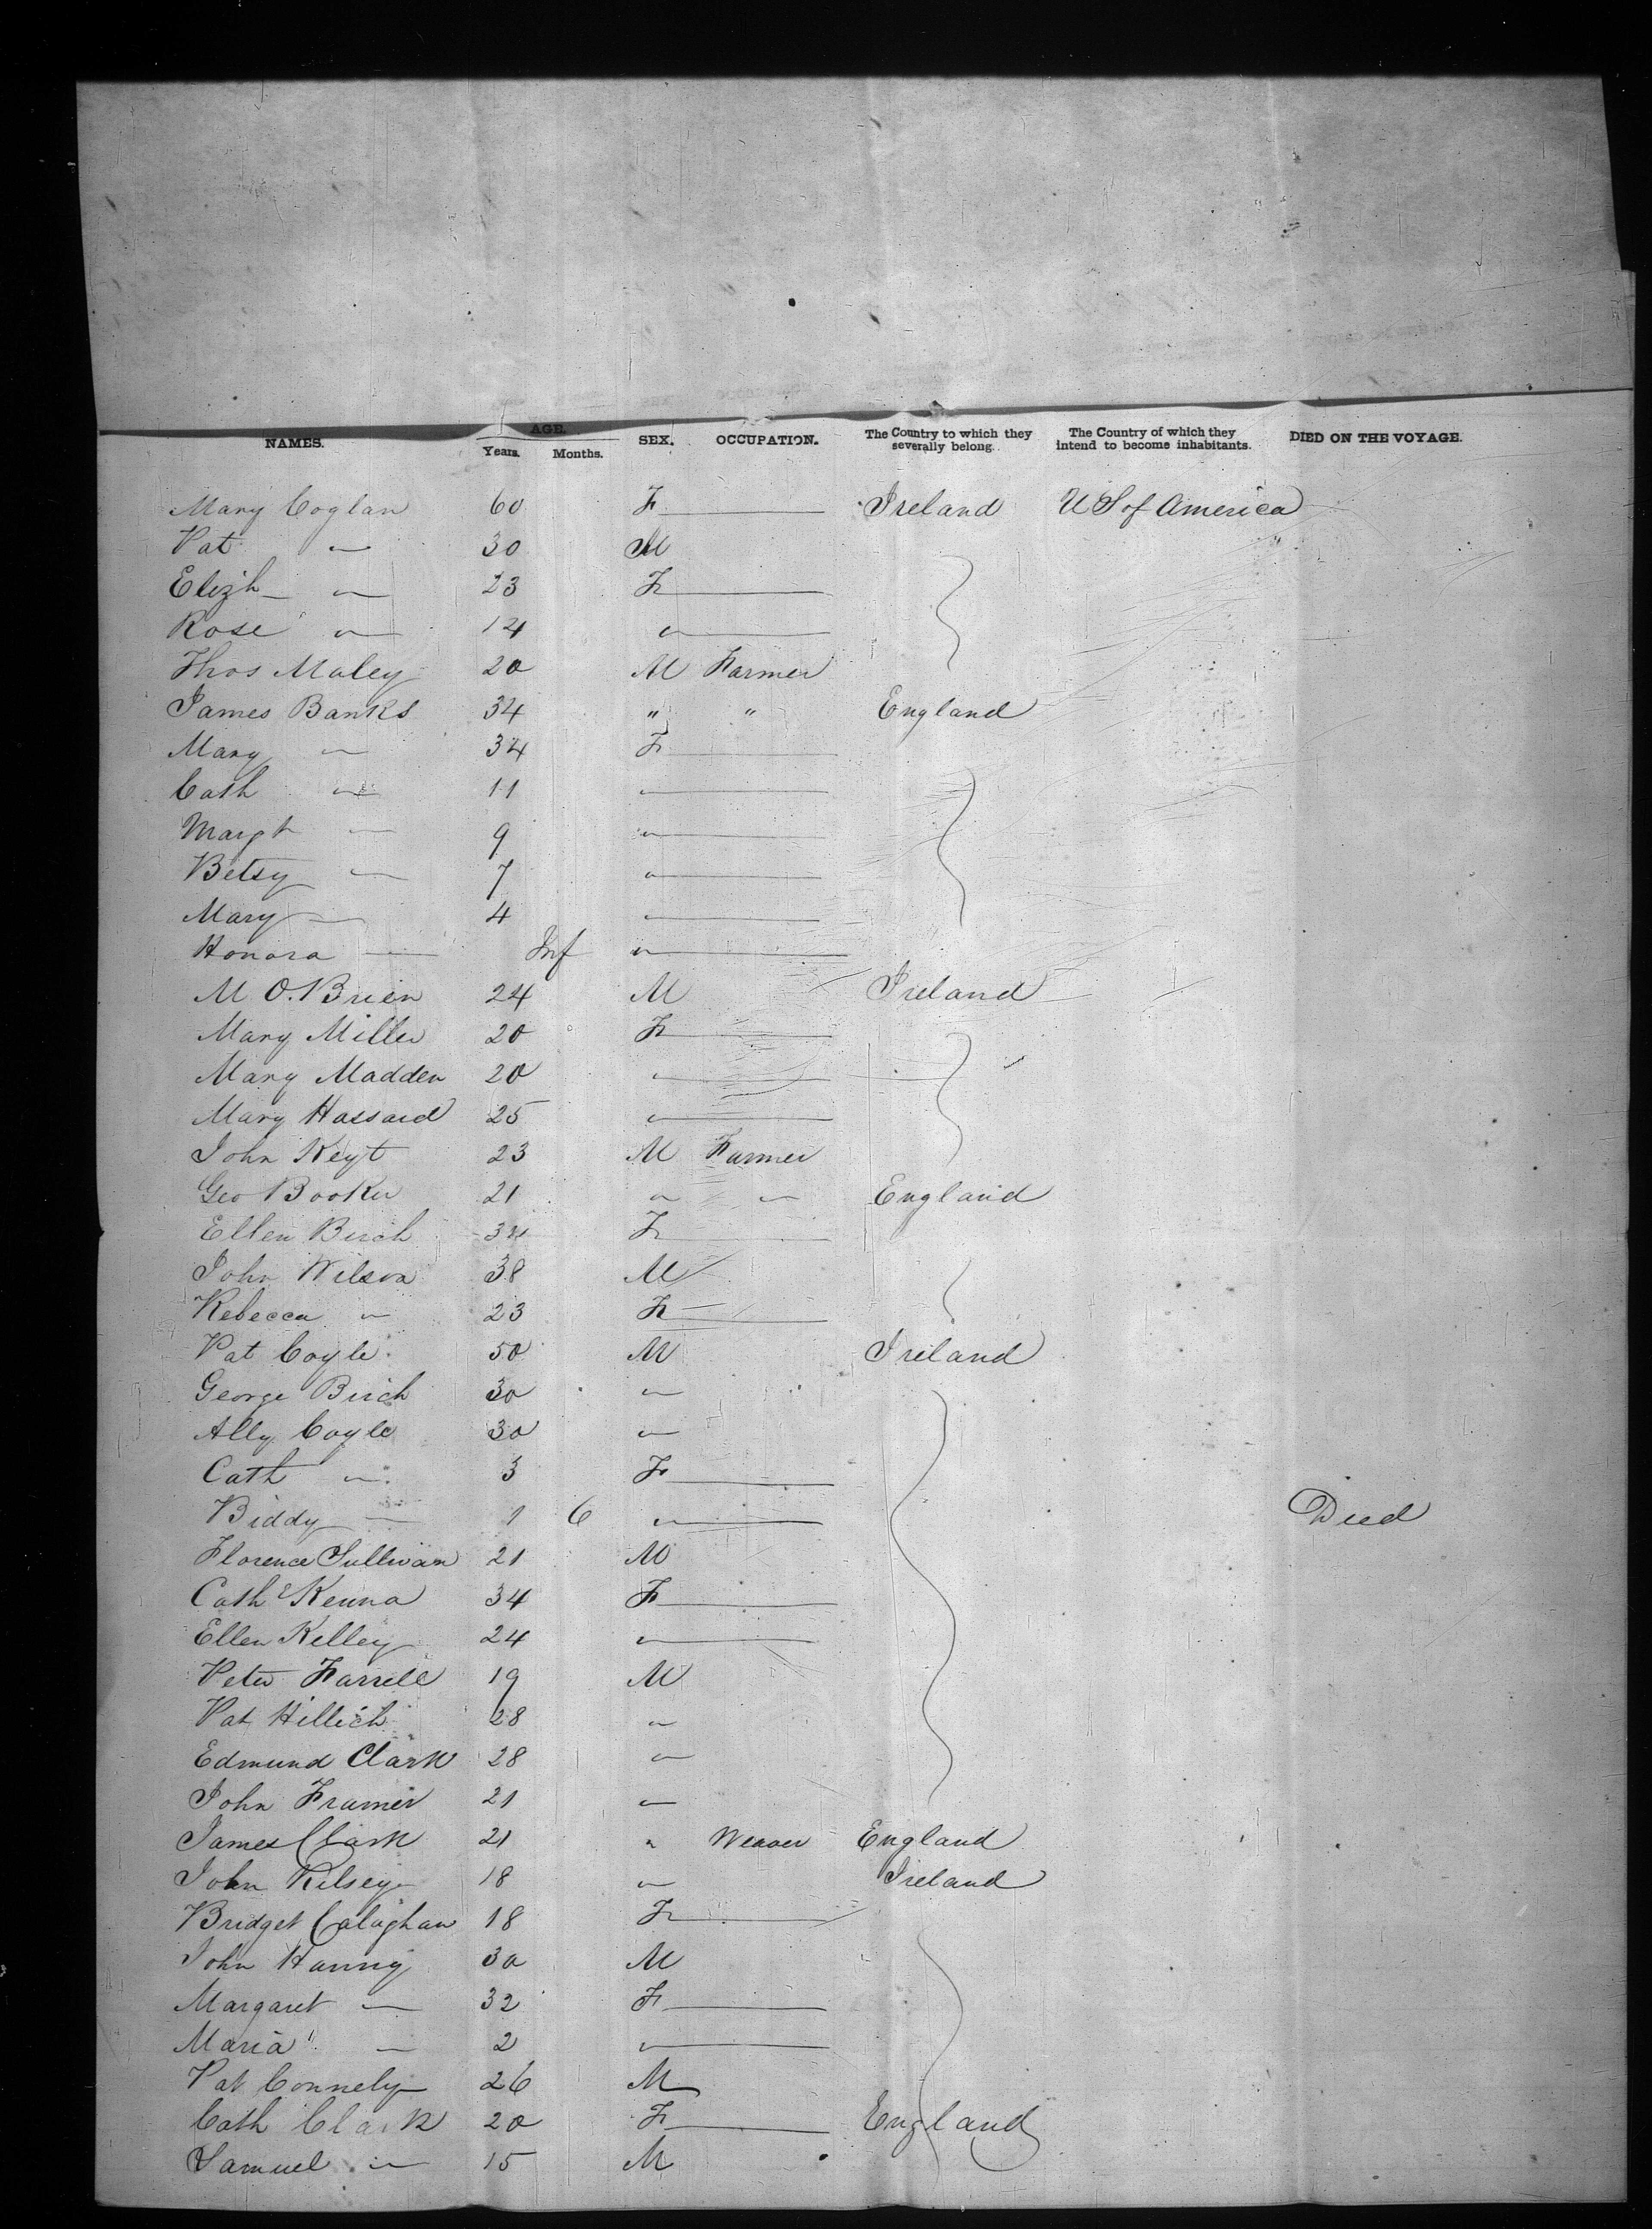 NAMES. AGE. Years. Months. SEX. OCCUPATION. The Country to which they severally belong. The Country of which they intend to become inhabitants. DIED ON THE VOYAGE.
Mary Coglan 60 F Ireland U S of America
Pat " 30 M
Elizh " 23 F
Rose " 14 "
Thos Maley 20 M Farmer
James Banks 34 " " England
Mary " 34 F
Cath " 11 "
Margt " 9 "
Betsy " 7 "
Mary " 4 "
Honora " Inf "
M O.Brien 24 M Ireland
Mary Miller 20 F
Mary Madden 20 "
Mary Hassard 25 "
John Keyt 23 M Farmer
Geo Booker 21 " " England
Ellen Birch 34 F
John Wilson 38 M
Rebecca " 23 F
Pat Coyle 50 M Ireland
George Birch 30 "
Ally Coyle 30 "
Cath " 3 F
Biddy " 1 6 " Died
Florence Sullivan 21 M
Cath Kenna 34 F
Ellen Kelley 24 "
Peter Farrell 19 M
Pat Hillich 28 "
Edmund Clark 28 "
John Framer 21 "
James Clark 21 " Weaver England
John Kelsey 18 " Ireland
Bridget Calaghan 18 F
John Hannig 30 M
Margaret " 32 F
Maria " 2 "
Pat Connely 26 M
Cath Clark 20 F England
Samuel " 15 M